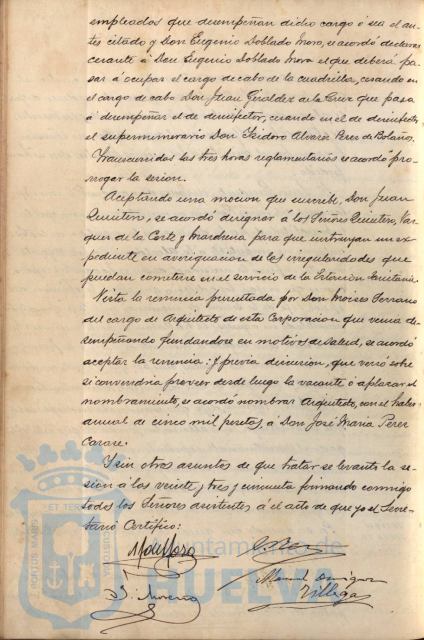 empleados que desempeñan dicho cargo ó sea el an-
tes citado y Don Eugenio Doblado Moro, se acordó declarar
cesante á Don Eugenio Doblado Moro el que deberá pa-
sar á ocupar el cargo de cabo de la cuadrilla, cesando en
el cargo de cabo Don Juan Geraldez de la Cruz que pasa
á desempeñar el de desinfector, cesando en el de desinfector
el supernumerario Don Isidoro Alvarez Perez de Bolaños.
Transcurridas las tres horas reglamentarias se acordó pro-
rrogar la sesion.
Aceptando una mocion que suscribe, Don Juan
Quintero, se acordó designar á los Señores Quintero, Vaz-
quez de la Corte y Marchena para que instruyan un ex-
pediente en averiguacion de las irregularidades que
puedan cometerse en el servicio de la Estacion Sanitaria.
Vista la renuncia presentada por Don Moises Serrano
del cargo de Arquitecto de esta Corporacion que venia de-
sempeñando fundandose en motivos de salud, se acordó
aceptar la renuncia: y previa discusion, que versó sobre
si convendria proveer desde luego la vacante ó aplazar el
nombramiento, se acordó nombrar Arquitecto, con el haber
anual de cinco mil pesetas, á Don José Maria Perez
Carasa.
Y sin otros asuntos de que tratar se levanta la se-
sion á las veinte y tres y cincuenta firmando conmigo
todos los Señores asistentes á el acto de que yo el Secre-
tario Certifico:
J. Moreno
Manuel Dominguez
Villegas
Ayuntamiento de
HUELVA